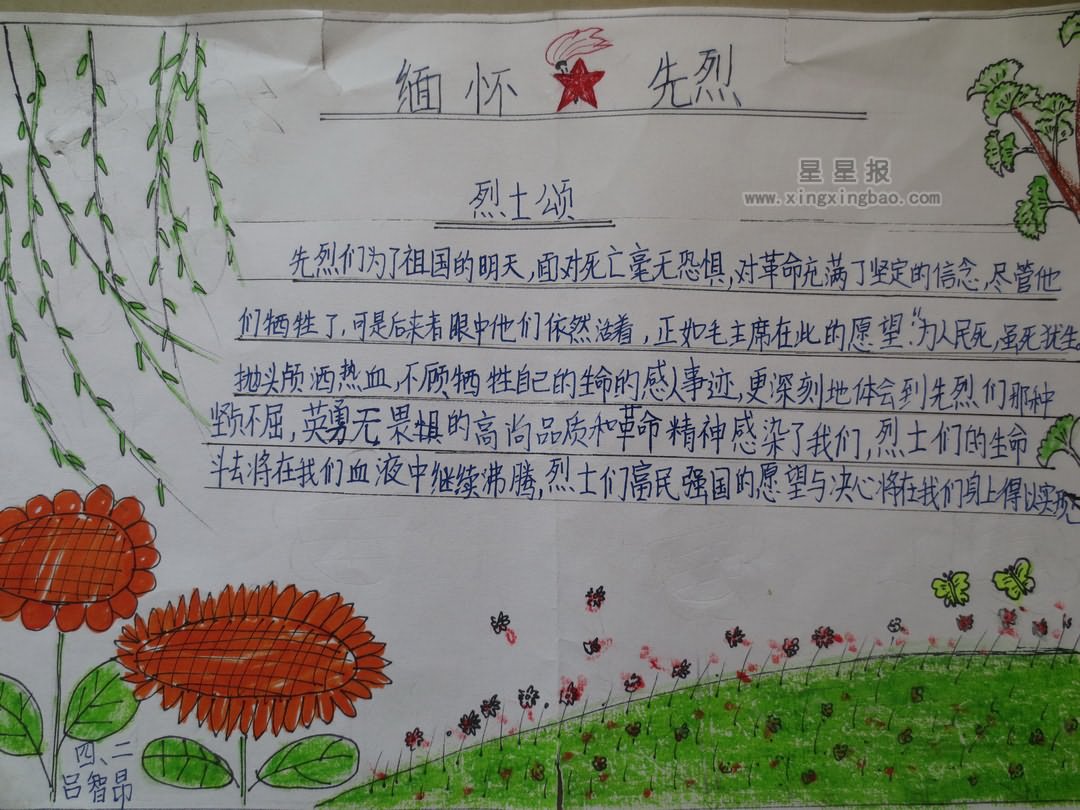 缅怀 先烈
星星报
www.xingxingbao.com
烈士颂
先烈们为了祖国的明天,面对死亡毫无恐惧,对革命充满了坚定的信念,尽管他
们牺牲了,可是后来者眼中他们依然活着,正如毛主席在此的愿望:“为人民死,虽死犹生
抛头颅洒热血,不顾牺牲自己的生命的感人事迹,更深刻地体会到先烈们那种
坚贞不屈,英勇无畏惧的高尚品质和革命精神感染了我们,烈士们的生命
斗去将在我们血液中继续沸腾,烈士们富民强国的愿望与决心将在我们身上得以实现
四、二
吕智昂